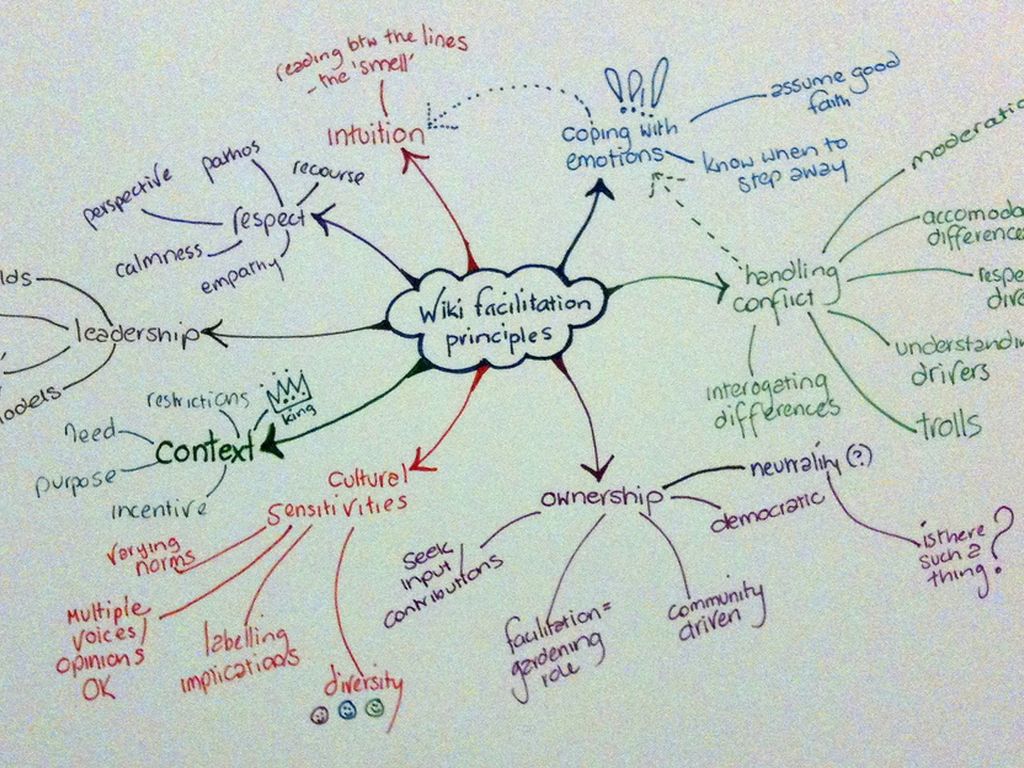 reading btw the lines
- the 'smell'
intuition
!!!
coping with
emotions
assume good
faith
know when to
step away
pathos
recourse
perspective
respect
calmness
empathy
leadership
Wiki facilitation
principles
handling
conflict
accomoda
differences
respe
understandin
drivers
interogating
differences
trolls
restrictions
king
need
context
purpose
incentive
cultural
sensitivities
varying
norms
multiple
voices/
opinions
OK
labelling
implications
diversity
ownership
neutrality (?)
democratic
is there
such a
thing?
seek
input/
contributions
facilitation =
gardening
role
community
driven